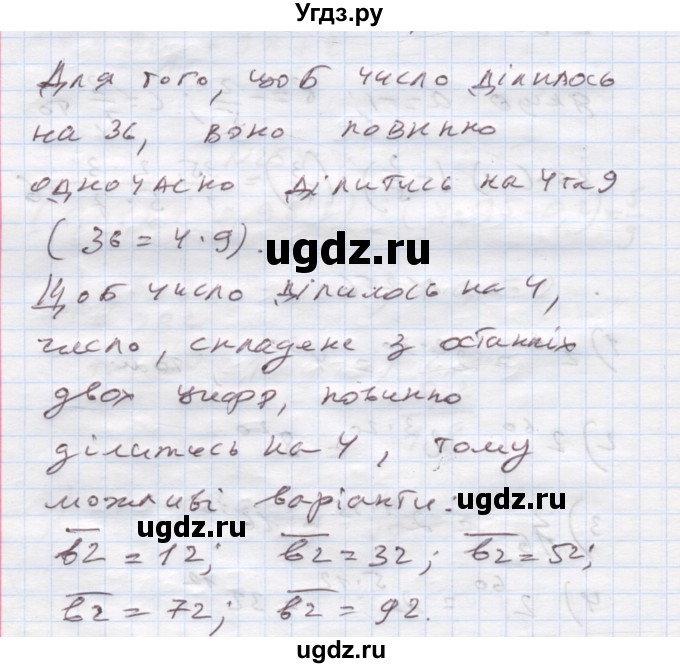 Угдз.ру
Для того, щоб число ділилось
на 36, воно повинно
одночасно ділитись на 4 та 9
(36 = 4 · 9).
ugdz.ru
Щоб число ділилось на 4,
число, складене з останніх
двох цифр, повинно
ділитись на 4, тому
ugdz.ru
можливі варіанти:
ugdz.ru
b2 = 12; b2 = 32; b2 = 52;
b2 = 72; b2 = 92.
ugdz.ru
ugdz.ru